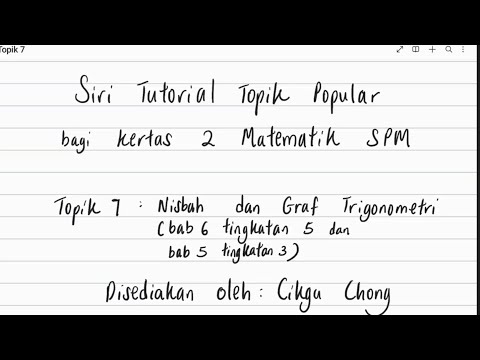 Topik 7
Siri Tutorial Topik Popular
bagi kertas 2 Matematik SPM
Topik 7 : Nisbah dan Graf Trigonometri
(bab 6 tingkatan 5 dan
bab 5 tingkatan 3)
Disediakan oleh : Cikgu Chong